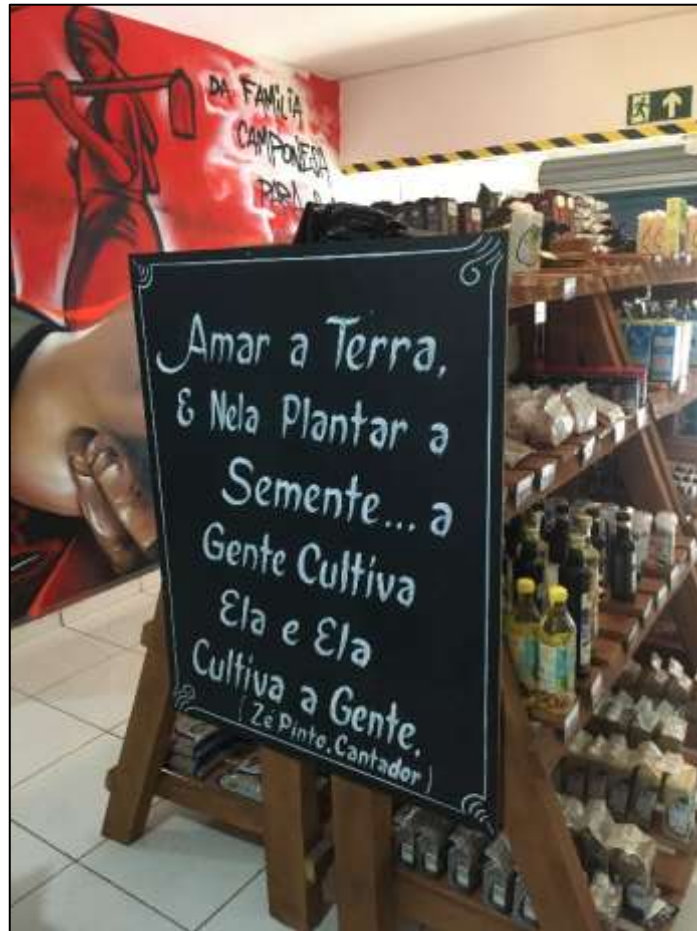 DA FAMÍLIA
CAMPONESA,
PARA
Amar a Terra,
& Nela Plantar a
Semente... a
Gente Cultiva
Ela e Ela
Cultiva a Gente.
(Zé Pinto, Cantador)